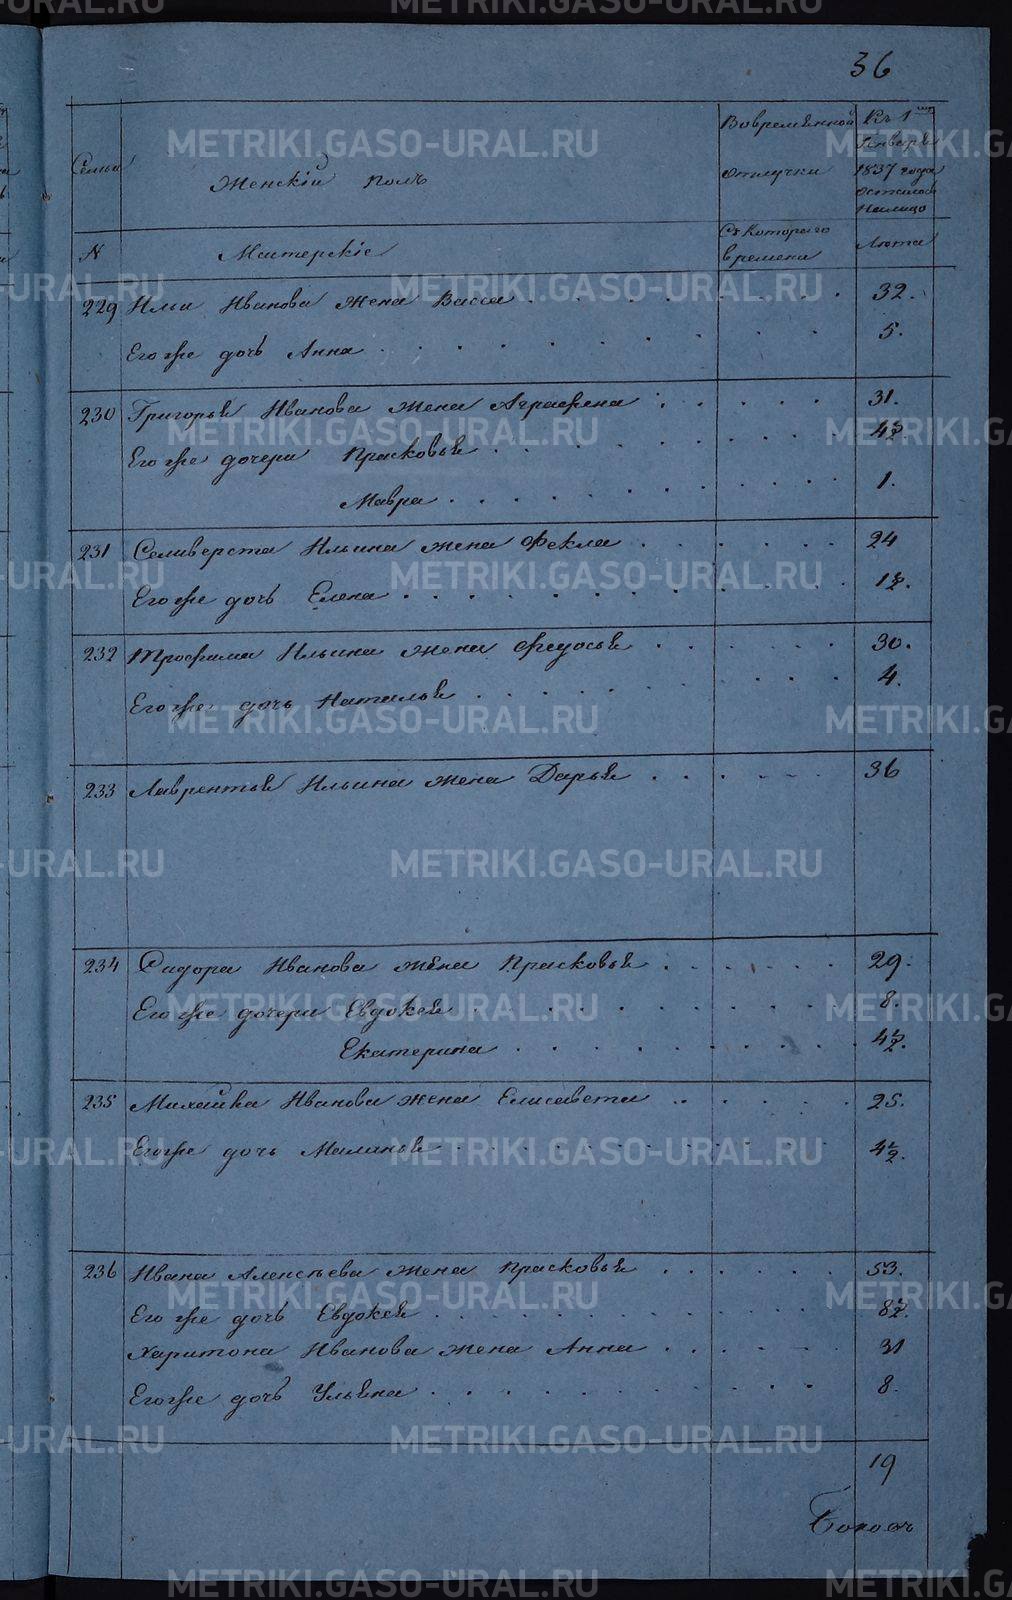 36
Семьи
Женскій полъ
Вовременной отлучки
Къ 1 Генваря 1837 года осталось Налицо
N
Мастерскіе
Съ Котораго времени
Лѣта
229 Ильи Иванова жена Васса 32.
Егоже дочь Анна 5.
230 Григорья Иванова жена Аграфена 31.
Егоже дочери Прасковья 4½.
Мавра 1.
231 Селиверста Ильина жена Фекла 24
Егоже дочь Елена 1½.
232 Трофима Ильина жена Федосья 30.
Егоже дочь Наталья 4.
233 Лаврентья Ильина жена Дарья 36
234 Сидора Иванова жена Прасковья 29.
Егоже дочери Евдокея 8.
Екатерина 4½.
235 Михайла Иванова жена Елисавета 25.
Егоже дочь Маланья 4½.
236 Ивана Алексѣева жена Прасковья 53.
Егоже дочь Евдокея 8½.
Харитона Иванова жена Анна 31
Егоже дочь Ульяна 8.
19
METRIKI.GASO-URAL.RU